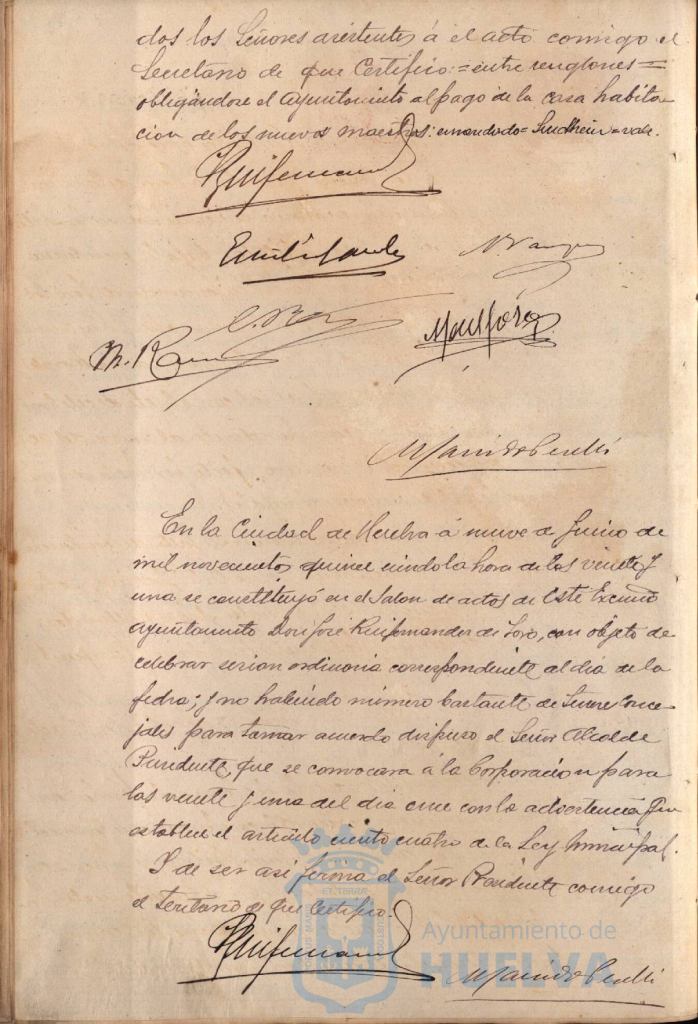 dos los Señores asistentes á el acto comigo el
Secretario de que Certifico:=entre renglones=
obligándose el Ayuntamiento al pago de la casa habita-
cion de los nuevos maestros: enmendado= Sundheim=vale.
M. 
En la Ciudad de Huelva á nueve de Junio de
mil novecientos quince siendo la hora de las veinte y
una se constituyó en el Salon de actos de este Excmo
Ayuntamiento Don José Ruifernandez de Toro, con objeto de
celebrar sesion ordinaria correspondiente al dia de la
fecha; y no habiendo número bastante de Señores Conce-
jales para tomar acuerdo dispuso el Señor Alcalde
Presidente, que se convocara á la Corporacion para
las veinte y una del dia once con la advertencia que
establece el artículo ciento cuatro de la Ley Municipal.
Y de ser asi firma el Señor Presidente comigo
el Secretario de que Certifico.
Ayuntamiento de
HUELVA